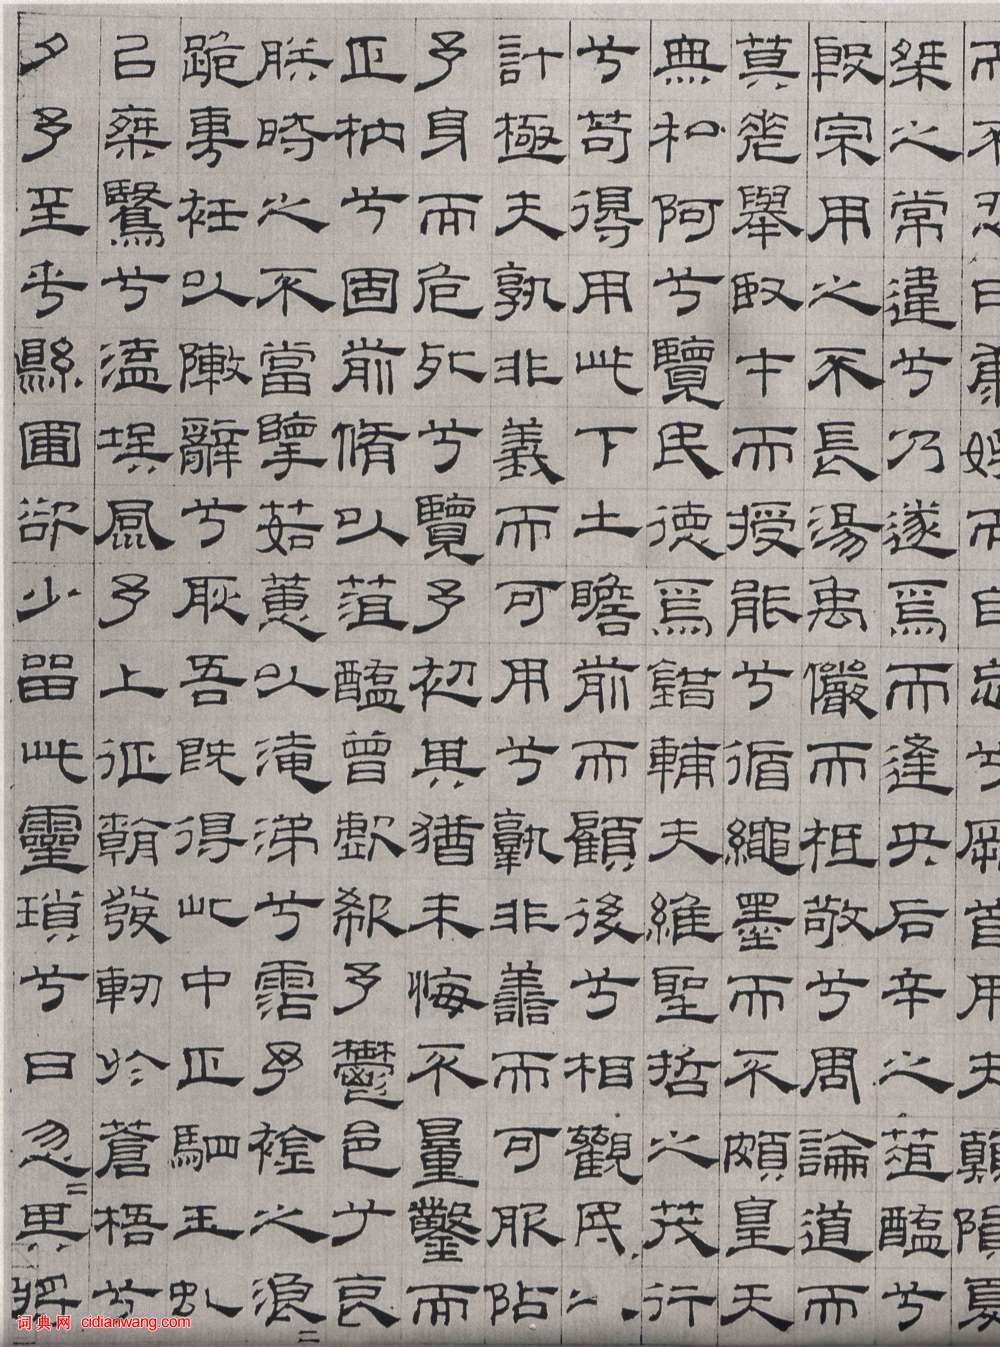 而不忍曰康娛而自忘兮厥首用夫顛隕夏
桀之常違兮乃遂焉而逢央后辛之菹醢兮
殷宗用之不長湯禹儼而祗敬兮周論道而
莫差舉臤才而授能兮循繩墨而不頗皇天
無私阿兮覽民德焉錯輔夫維聖哲之茂行
兮苟得用此下土瞻前而顧後兮相觀民之
計極夫孰非義而可用兮孰非善而可服阽
予身而危死兮覽予初其猶未悔不量鑿而
正枘兮固前脩以菹醢曾歔欷予鬱邑兮哀
朕時之不當擥茹蕙以淹涕兮霑予襟之浪=
跪專衽以敶辭兮耿吾既得此中正駟玉虬
已椉鷖兮溘埃風予上征朝發軔於蒼梧兮
夕予至乎縣圃欲少留此靈瑣兮日忽=其將
词典网 cidianwang.com